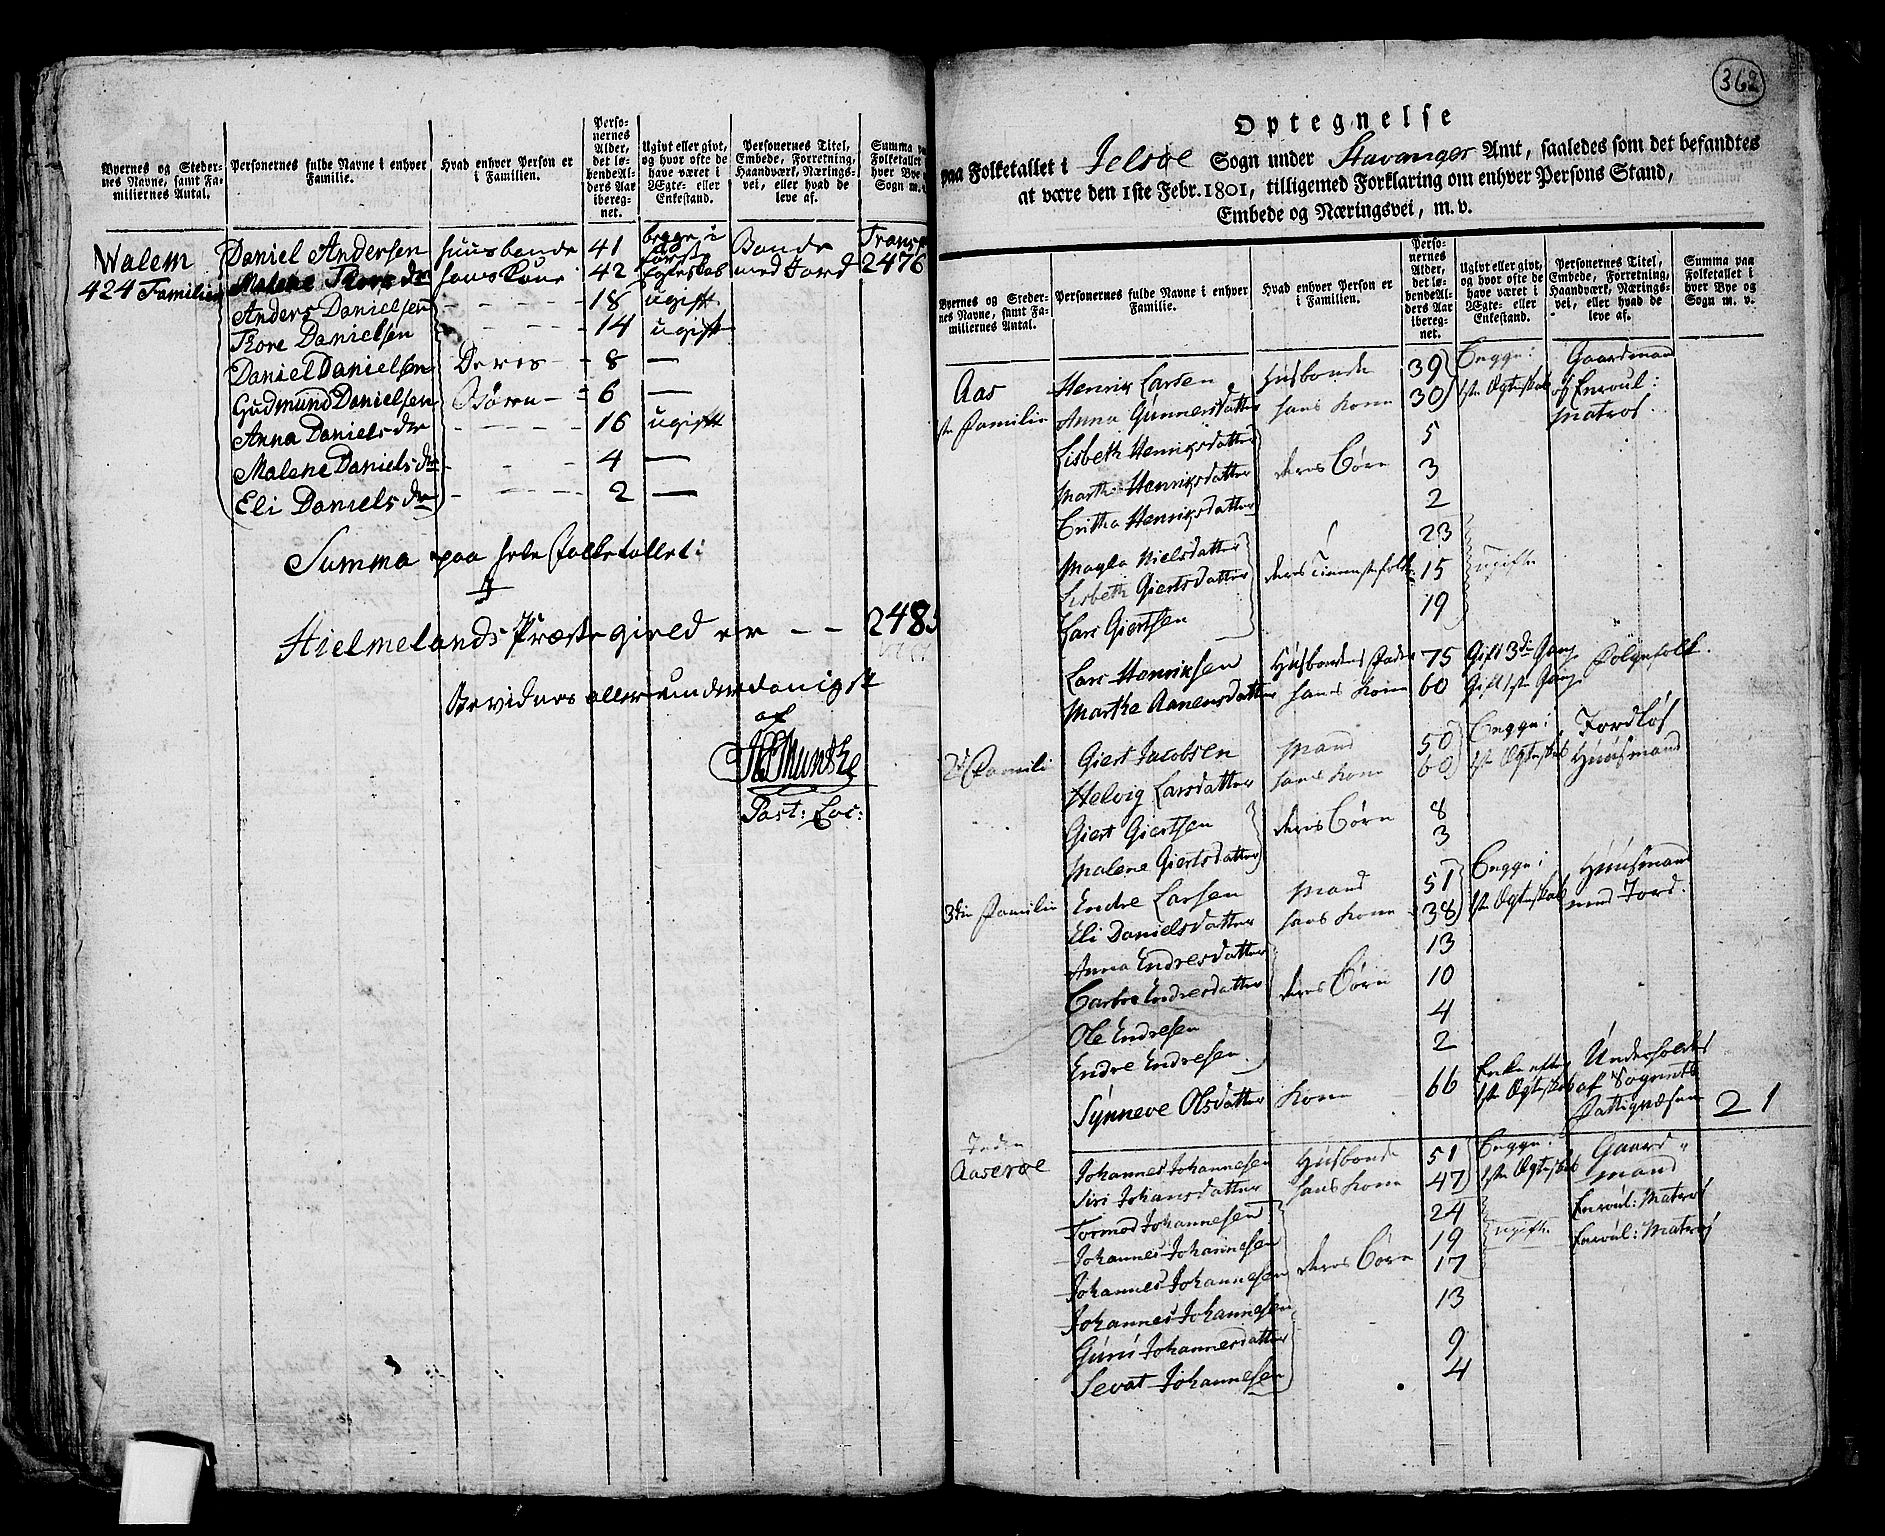 Byernes og Steder-
nes Navne, samt Fa-
miliernes Antal.
Personernes fulde Navne i enhver
Familie.
Hvad enhver Person er
i Familien.
Perso-
nernes
Alder,
det lø-
bende Al-
ders Aar
ibereg-
net.
Ugivt eller givt,
og hvor ofte de
have været i
Ægte- eller
Enkestand.
Personernes Titel,
Embede, Forretning,
Haandværk, Nærings-
vei, eller hvad de
leve af.
Summa paa
Folketallet i
hver Bye og
Sogn m. v.
Walem Daniel Andersen huusbonde 41 begge i Bonde Transp
424 Familien Malene Thoresdr hans Kone 42 første Egteskab med Jord 2476
Anders Danielsen 18 ugift
Thore Danielsen 14 ugift
Daniel Danielsen Deres 8 —
Gudmund Danielsen Børn 6 —
Anna Danielsdr 16 ugift
Malene Danielsdr 4 —
Eli Danielsdr 2 —
Summa paa hele Folketallet i
Hielmelands Præstegield er — — 2485
Bevidnes allerunderdanigst
af
Past: Loc:
362
Optegnelse
paa Folketallet i Jelsøe Sogn under Stavanger Amt, saaledes som det befandtes
at være den 1ste Febr. 1801, tilligemed Forklaring om enhver Persons Stand,
Embede og Næringsvei, m. v.
Byernes og Steder-
nes Navne, samt Fa-
miliernes Antal.
Personernes fulde Navne i enhver
Familie.
Hvad enhver Person er
i Familien.
Perso-
nernes
Alder,
det lø-
bende Al-
ders Aar
iberegnet.
Ugivt eller givt,
og hvor ofte de
have været i
Ægte- eller
Enkestand.
Personernes Titel,
Embede, Forretning,
Haandværk, Nærings-
vei, eller hvad de
leve af.
Summa paa
Folketallet i
hver Bye og
Sogn m. v.
Aas Henrik Larsen Husbonde 39 Begge i Gaardmand
1ste Familie Anna Gunnersdatter hans Kone 30 1ste Ægteskab og Enroul:
Matros
Lisbeth Henriksdatter 5
Martha Henriksdatter deres Børn 3
Britha Henriksdatter 2
Magla Nielsdatter 23
Lisbeth Giertsdatter deres Tienestefolk 15 ugifte
Lars Giertsen 19
Lars Henriksen Husbondens Fader 75 Gift 3die Gang Følgefolk.
Marthe Aanensdatter hans Kone 60 Gift 1ste Gang
2den Familie Giert Jacobsen Mand 50 Begge i Jordløs
Helvig Larsdatter hans Kone 60 1ste Ægteskab Huusmand
Giert Giertsen deres Børn 8
Malene Giertsdatter 3
3die Familie Endre Larsen Mand 51 Begge i Huusmand
Eli Danielsdatter hans Kone 38 1ste Ægteskab med Jord.
Anna Endresdatter 13
Barbro Endresdatter deres Børn 10
Ole Endresen 4
Endre Endresen 2
Synneve Olsdatter Kone 66 Enke efter 1ste Ægteskab Underholdes
af Sognets
Fattigvæsen 21
Inden
Aaserøe Johannes Johannesen Husbonde 51 Begge i Gaard-
Siri Johansdatter hans Kone 47 1ste Ægteskab mand
Tormod Johannesen 24 Enroul: Matros
Johannes Johannesen 19 ugifte Enroul: Matros
Johannes Johannesen deres Børn 17
Johannes Johannesen 13
Guru Johannesdatter 9
Sevat Johannesen 4